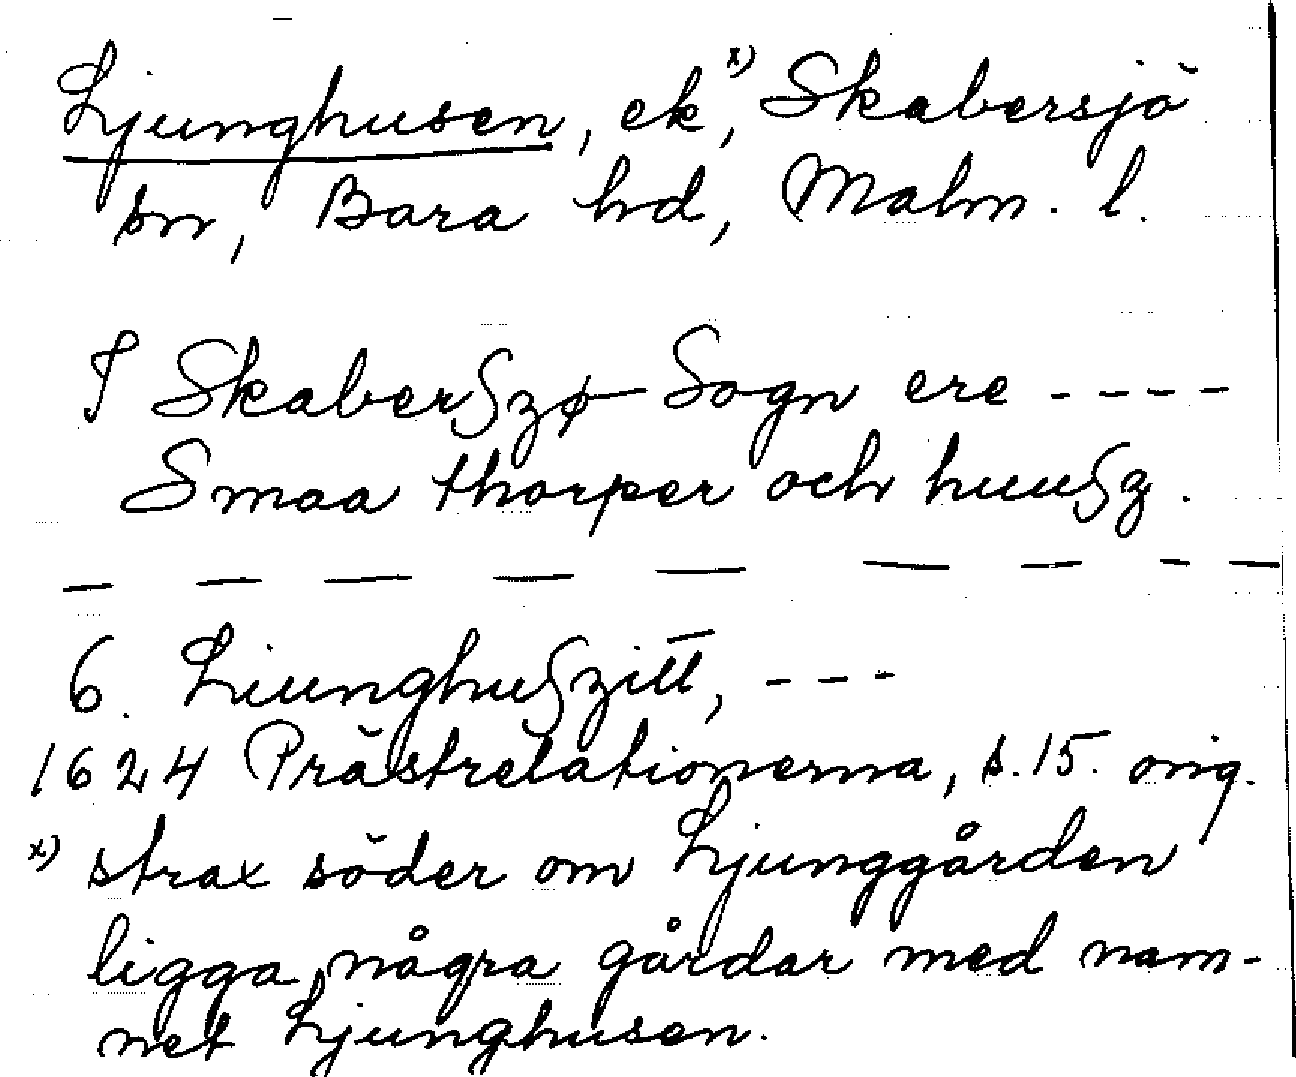 Ljunghusen, ek,ˣ⁾ Skabersjö
sn, Bara hd, Malm. l.
I Skaberſzø Sogn ere ----
Smaa thorper och huuſz.
— — — — — — — — —
6. Liunghuſzitt, ---
1624 Prästrelationerna, s. 15. orig.
x) strax söder om Ljunggården
ligga några gårdar med nam-
net Ljunghusen.